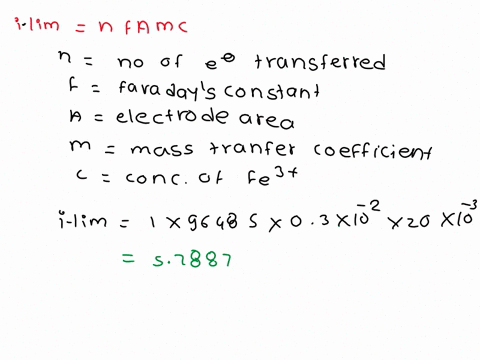 i-lim = n f A m c
n = no of e⊖ transferred
f = faraday's constant
A = electrode area
m = mass tranfer coefficient
c = conc. of fe³⁺
i-lim = 1 × 96485 × 0.3 × 10⁻² × 20 × 10⁻³
= 5.7887